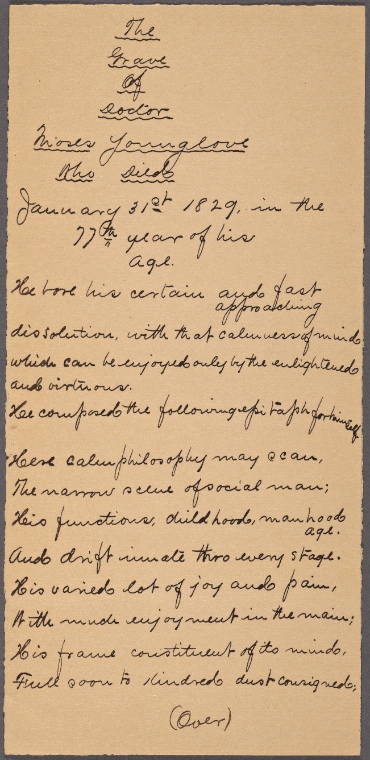 The
Grave
Of
Doctor
Moses Younglove
Who Died
January 31st 1829, in the
77th year of his
age.
He bore his certain and fast
approaching
dissolution, with that calmness of mind
which can be enjoyed only by the enlightened
and virtuous.
He composed the following epitaph for himself
Here calm philosophy may scan,
The narrow scene of social man;
His functions, childhood, manhood
age.
And drift innate thro every stage.
His varied lot of joy and pain,
With much enjoyment in the main;
His frame constituent of its mind,
Full soon to kindred dust consigned;
(Over)